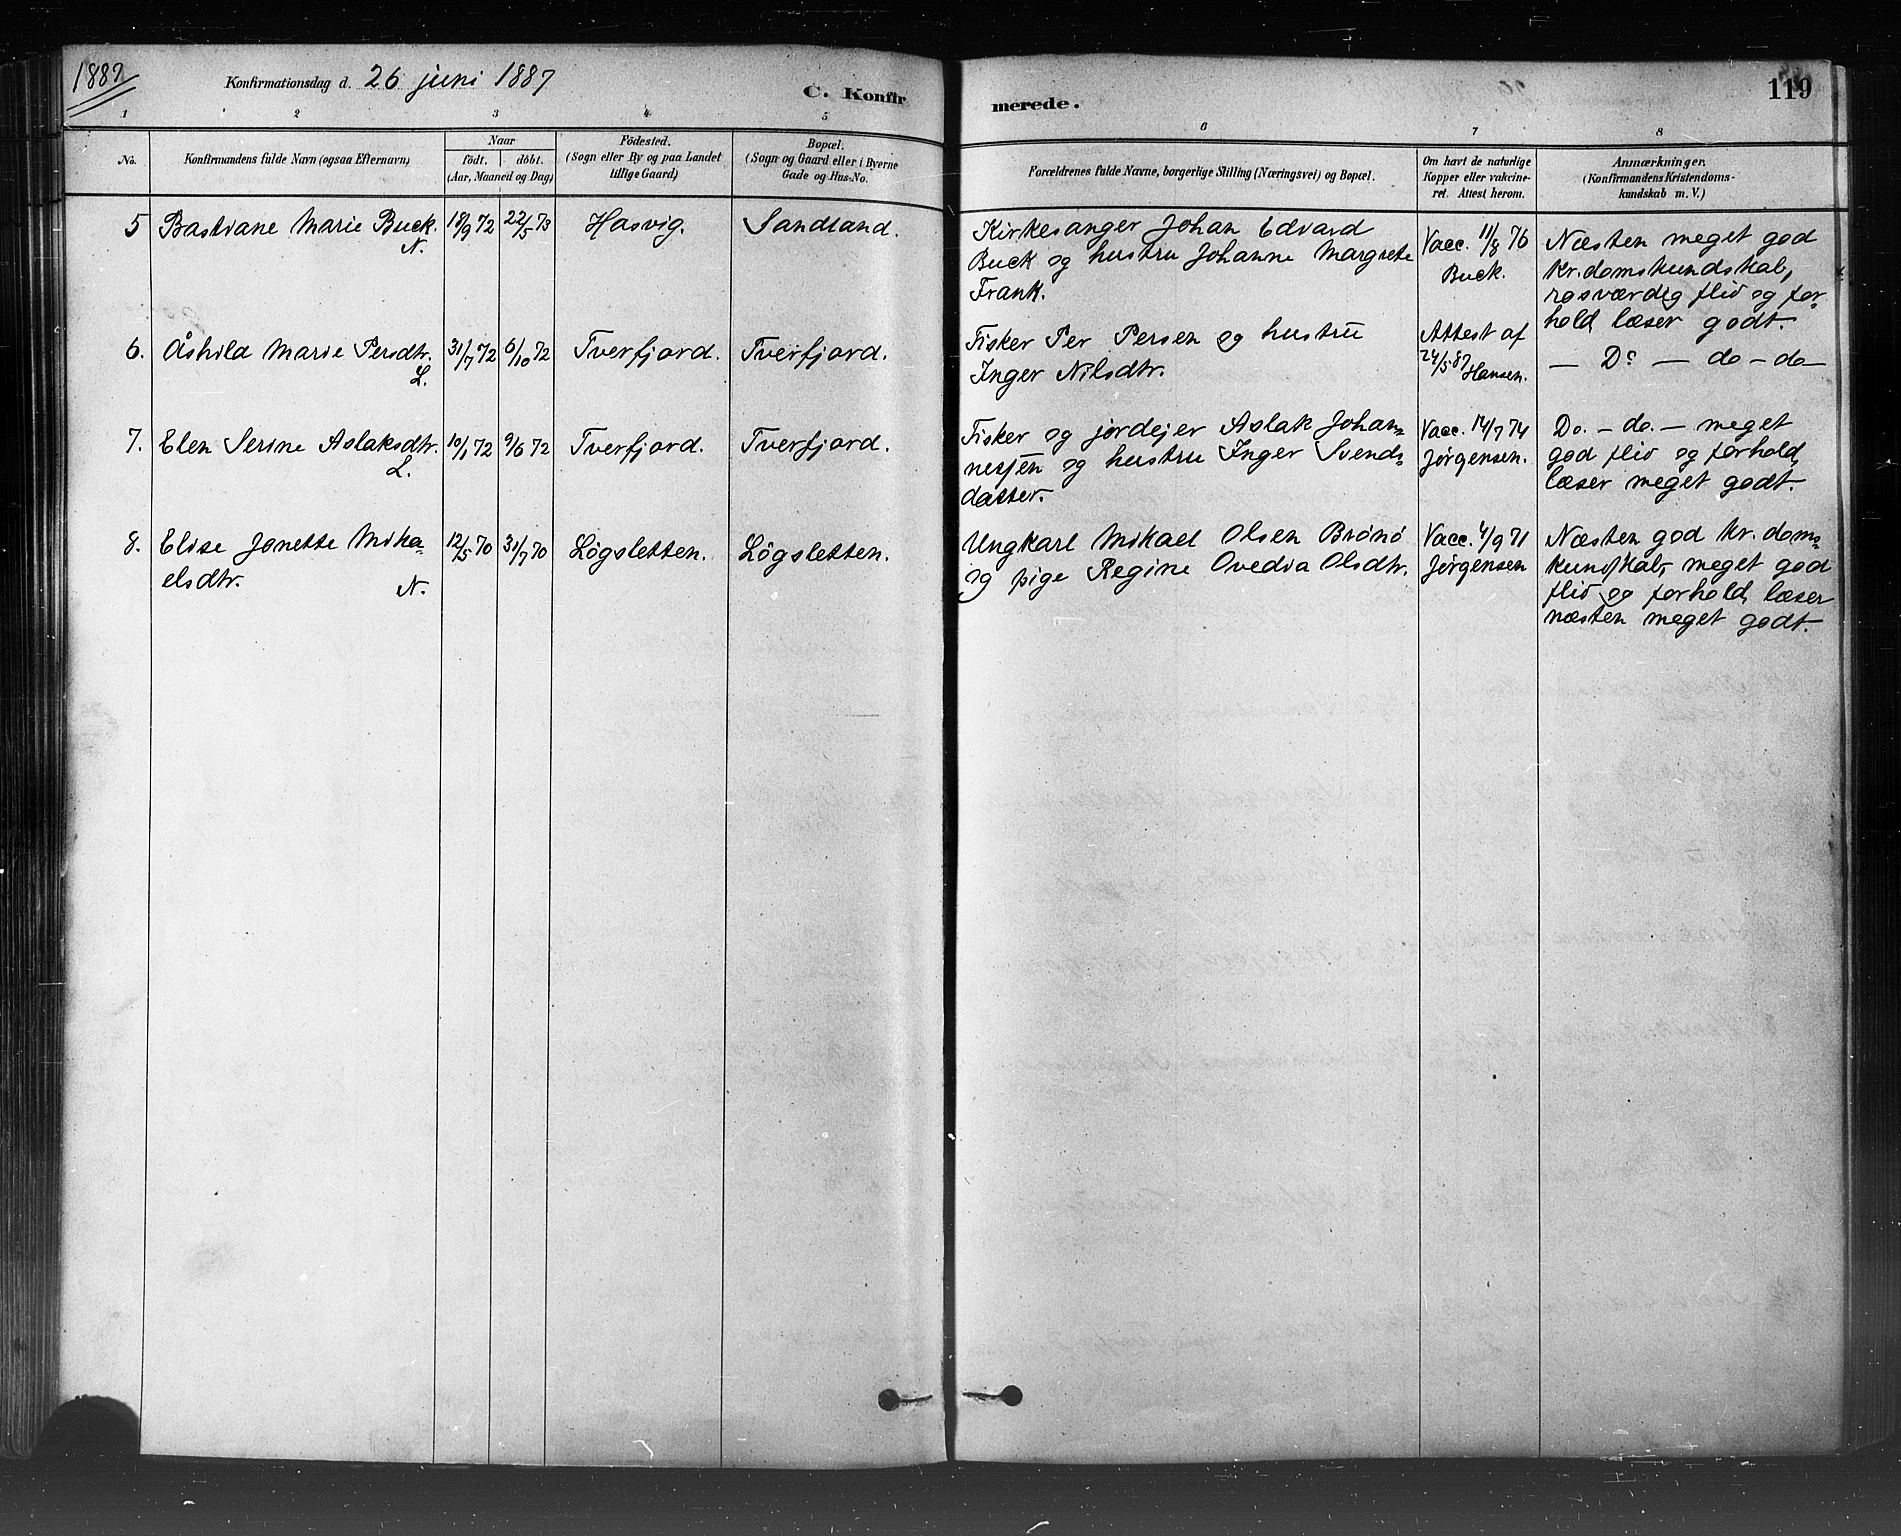 1887
Konfirmationsdag d. 26 juni 1887
C. Konfirmerede.
119
1 2 3 4 5 6 7 8
No.
Konfirmandens fulde Navn (ogsaa Efternavn)
Naar
födt. döbt.
(Aar, Maaned og Dag)
Födested.
(Sogn eller By og paa Landet
tillige Gaard)
Bopæl.
(Sogn og Gaard eller i Byerne
Gade og Hus-No.
Forældrenes fulde Navne, borgerlige Stilling (Næringsvei) og Bopæl.
Om havt de naturlige
Kopper eller vakcine-
ret. Attest herom.
Anmærkninger.
(Konfirmandens Kristendoms-
kundskab m. V.)
5 Bastiane Marie Buck.
N.
18/9 72
22/5 73
Hasvig.
Sandland.
Kirkesanger Johan Edvard
Buck og hustru Johanne Margrete
Frank.
Vacc. 11/8 76
Buck.
Næsten meget god
kr.domskundskab,
rosværdig flid og for-
hold, læser godt.
6. Åshild Marie Persdtr.
L.
31/7 72
6/10 72
Tverfjord.
Tverfjord.
Fisker Per Persen og hustru
Inger Nilsdtr.
Attest af
24/5 87 Hansen.
— Do — do — do —
7. Elen Serine Aslaksdtr.
L.
10/1 72
9/6 72
Tverfjord.
Tverfjord.
Fisker og jordejer Aslak Johan-
nesjen og hustru Inger Svends-
datter.
Vacc. 14/7 74
Jørgensen.
Do. — do. — meget
god flid og forhold,
læser meget godt.
8. Elise Jonette Mika-
elsdtr.
N.
12/5 70
31/7 70
Lögsletten.
Lögsletten.
Ungkarl Mikael Olsen Brønø
og pige Regine Ovedia Olsdtr.
Vacc. 4/9 71
Jørgensen
Næsten god kr. doms-
kundskab, meget god
flid og forhold, læser
næsten meget godt.